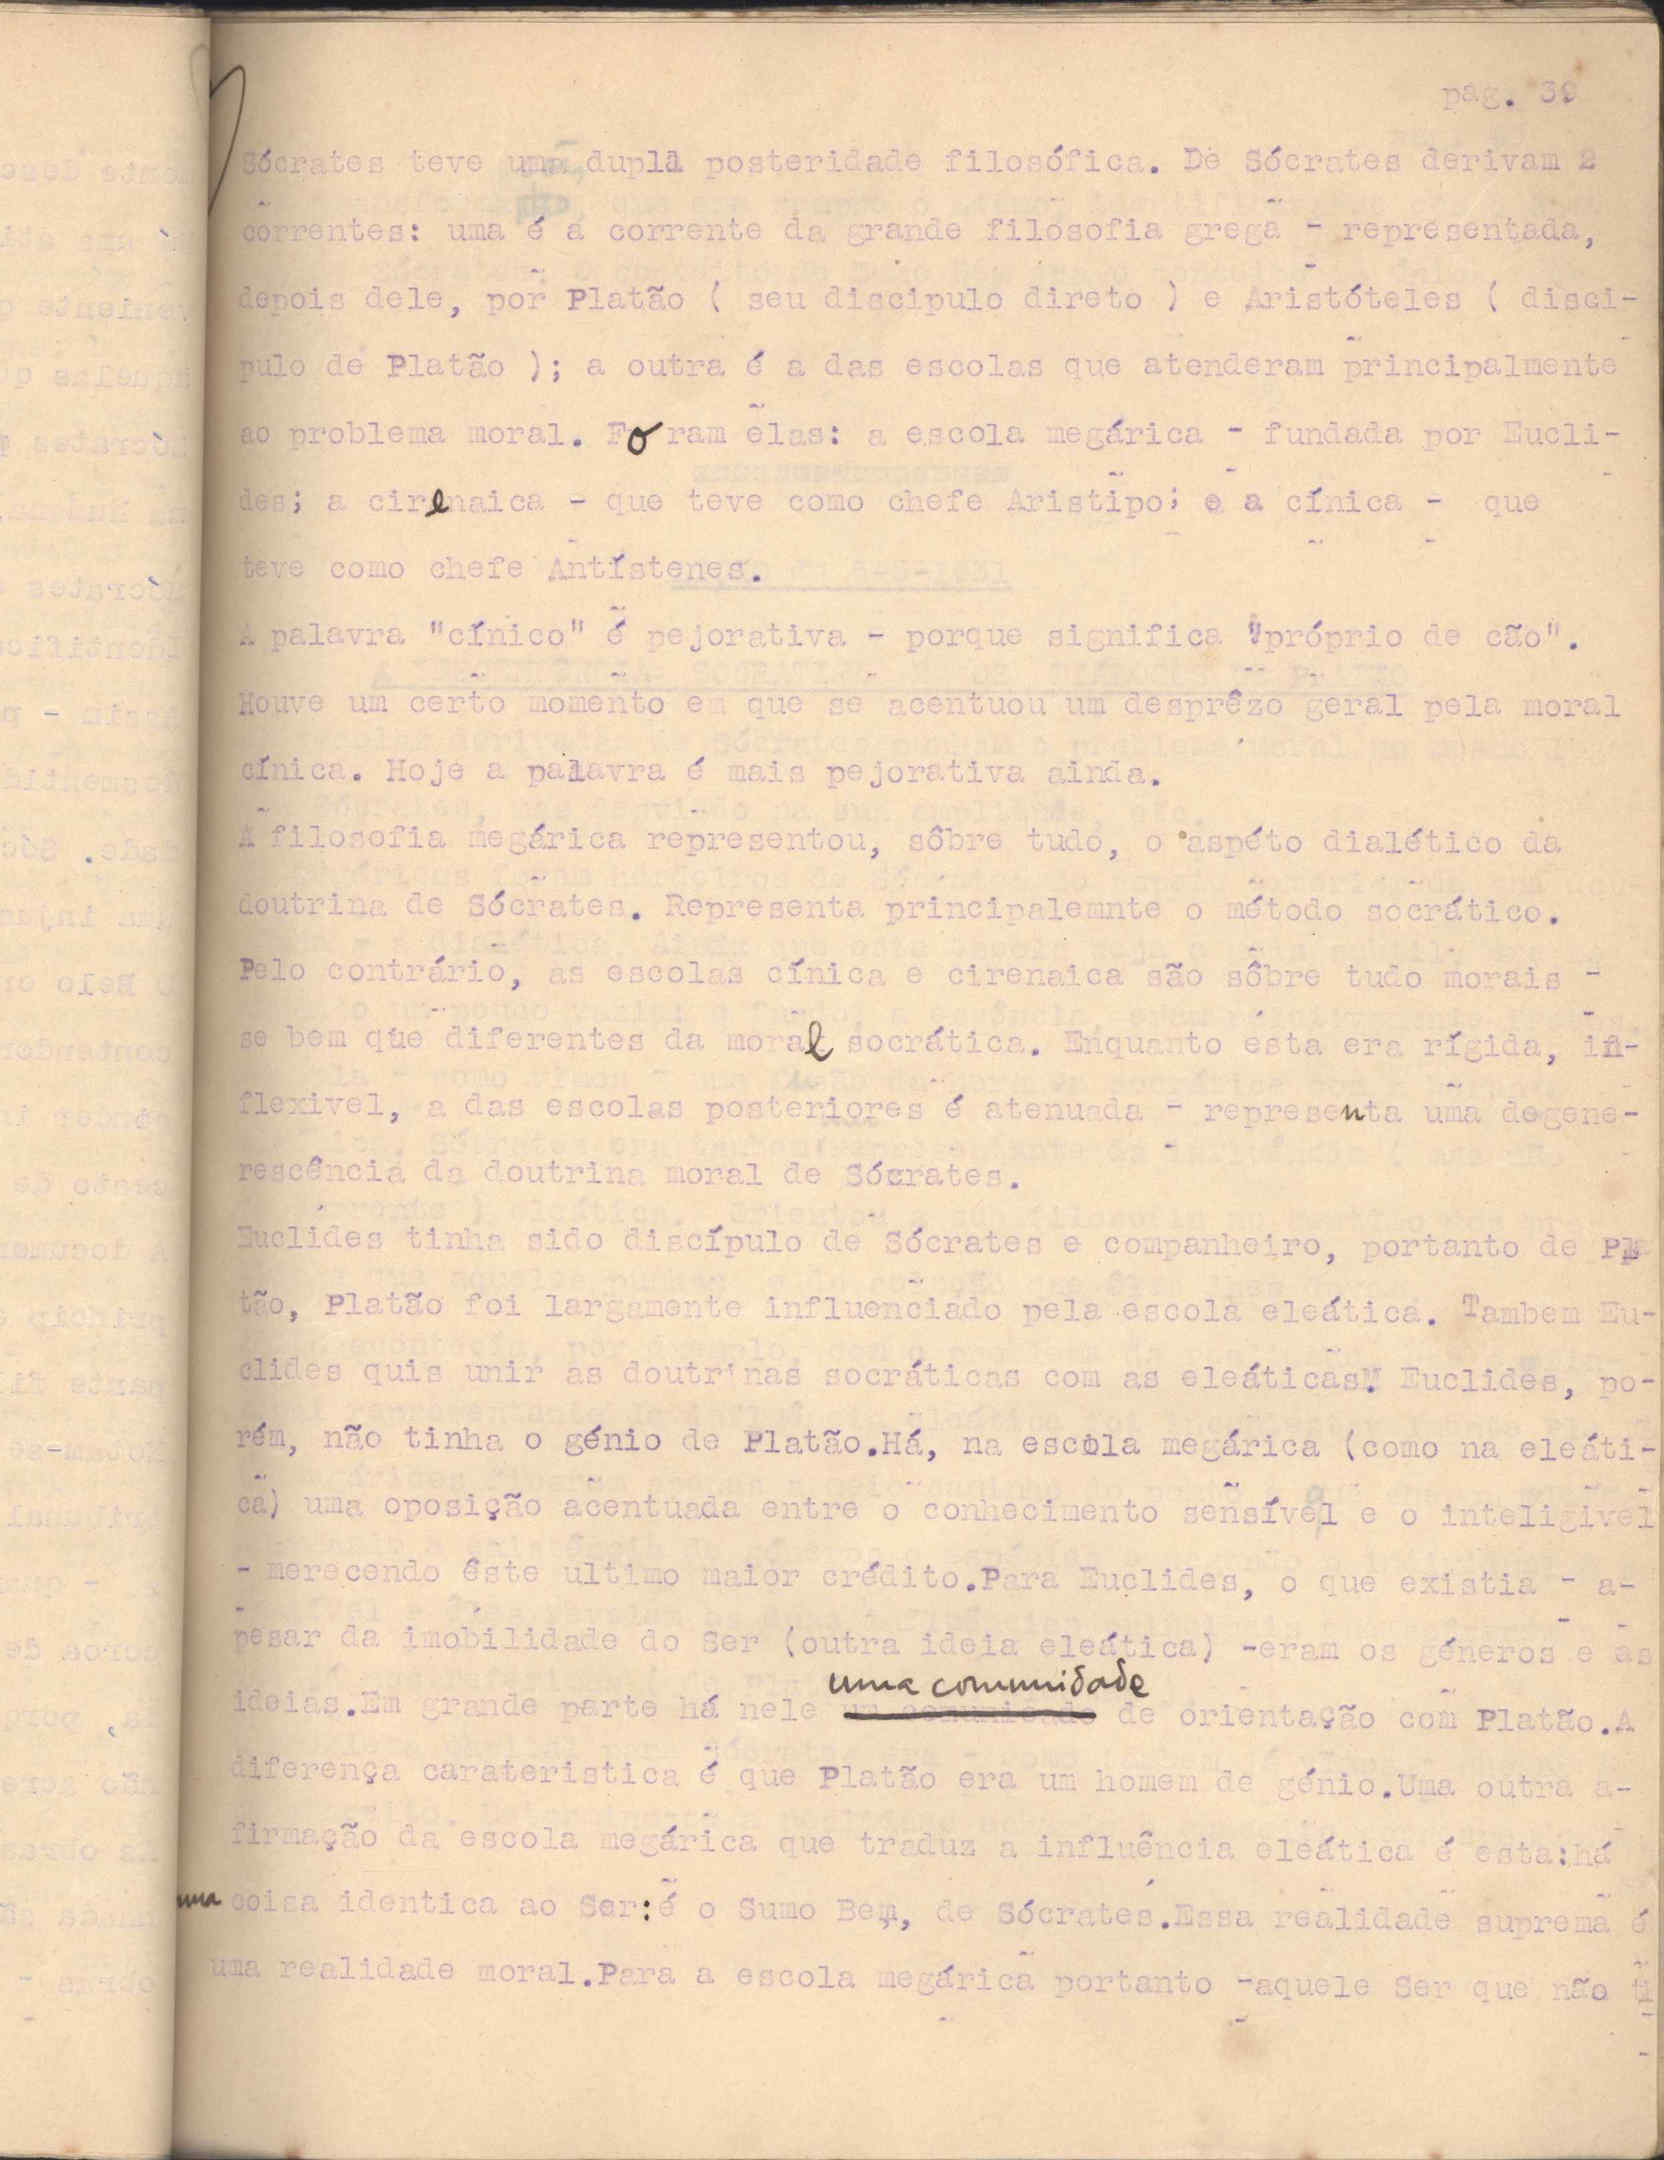 pag. 39
Sócrates teve uma dupla posteridade filosófica. De Sócrates derivam 2
correntes: uma é a corrente da grande filosofia grega - representada,
depois dele, por Platão ( seu discipulo direto ) e Aristóteles ( disci-
pulo de Platão ); a outra é a das escolas que atenderam principalmente
ao problema moral. Foram elas: a escola megárica - fundada por Eucli-
des; a cirenaica - que teve como chefe Aristipo; e a cínica - que
teve como chefe Antístenes.
A palavra "cínico" é pejorativa - porque significa "próprio de cão".
Houve um certo momento em que se acentuou um desprêzo geral pela moral
cínica. Hoje a palavra é mais pejorativa ainda.
A filosofia megárica representou, sôbre tudo, o aspéto dialético da
doutrina de Sócrates. Representa principalemnte o método socrático.
Pelo contrário, as escolas cínica e cirenaica são sôbre tudo morais -
se bem que diferentes da moral socrática. Enquanto esta era rígida, in-
flexivel, a das escolas posteriores é atenuada - representa uma degene-
rescência da doutrina moral de Sócrates.
Euclides tinha sido discípulo de Sócrates e companheiro, portanto de Pla
tão, Platão foi largamente influenciado pela escola eleática. Tambem Eu-
clides quis unir as doutrinas socráticas com as eleáticas. Euclides, po-
rém, não tinha o génio de Platão.Há, na escola megárica (como na eleáti-
ca) uma oposição acentuada entre o conhecimento sensível e o inteligivel
- merecendo êste ultimo maior crédito.Para Euclides, o que existia - a-
pesar da imobilidade do Ser (outra ideia eleática) -eram os géneros e as
uma comunidade
ideias.Em grande parte há nele um comunicado de orientação com Platão.A
diferença carateristica é que Platão era um homem de génio.Uma outra a-
firmação da escola megárica que traduz a influência eleática é esta:há
uma coisa identica ao Ser:é o Sumo Bem, de Sócrates.Essa realidade suprema é
uma realidade moral.Para a escola megárica portanto -aquele Ser que não ti